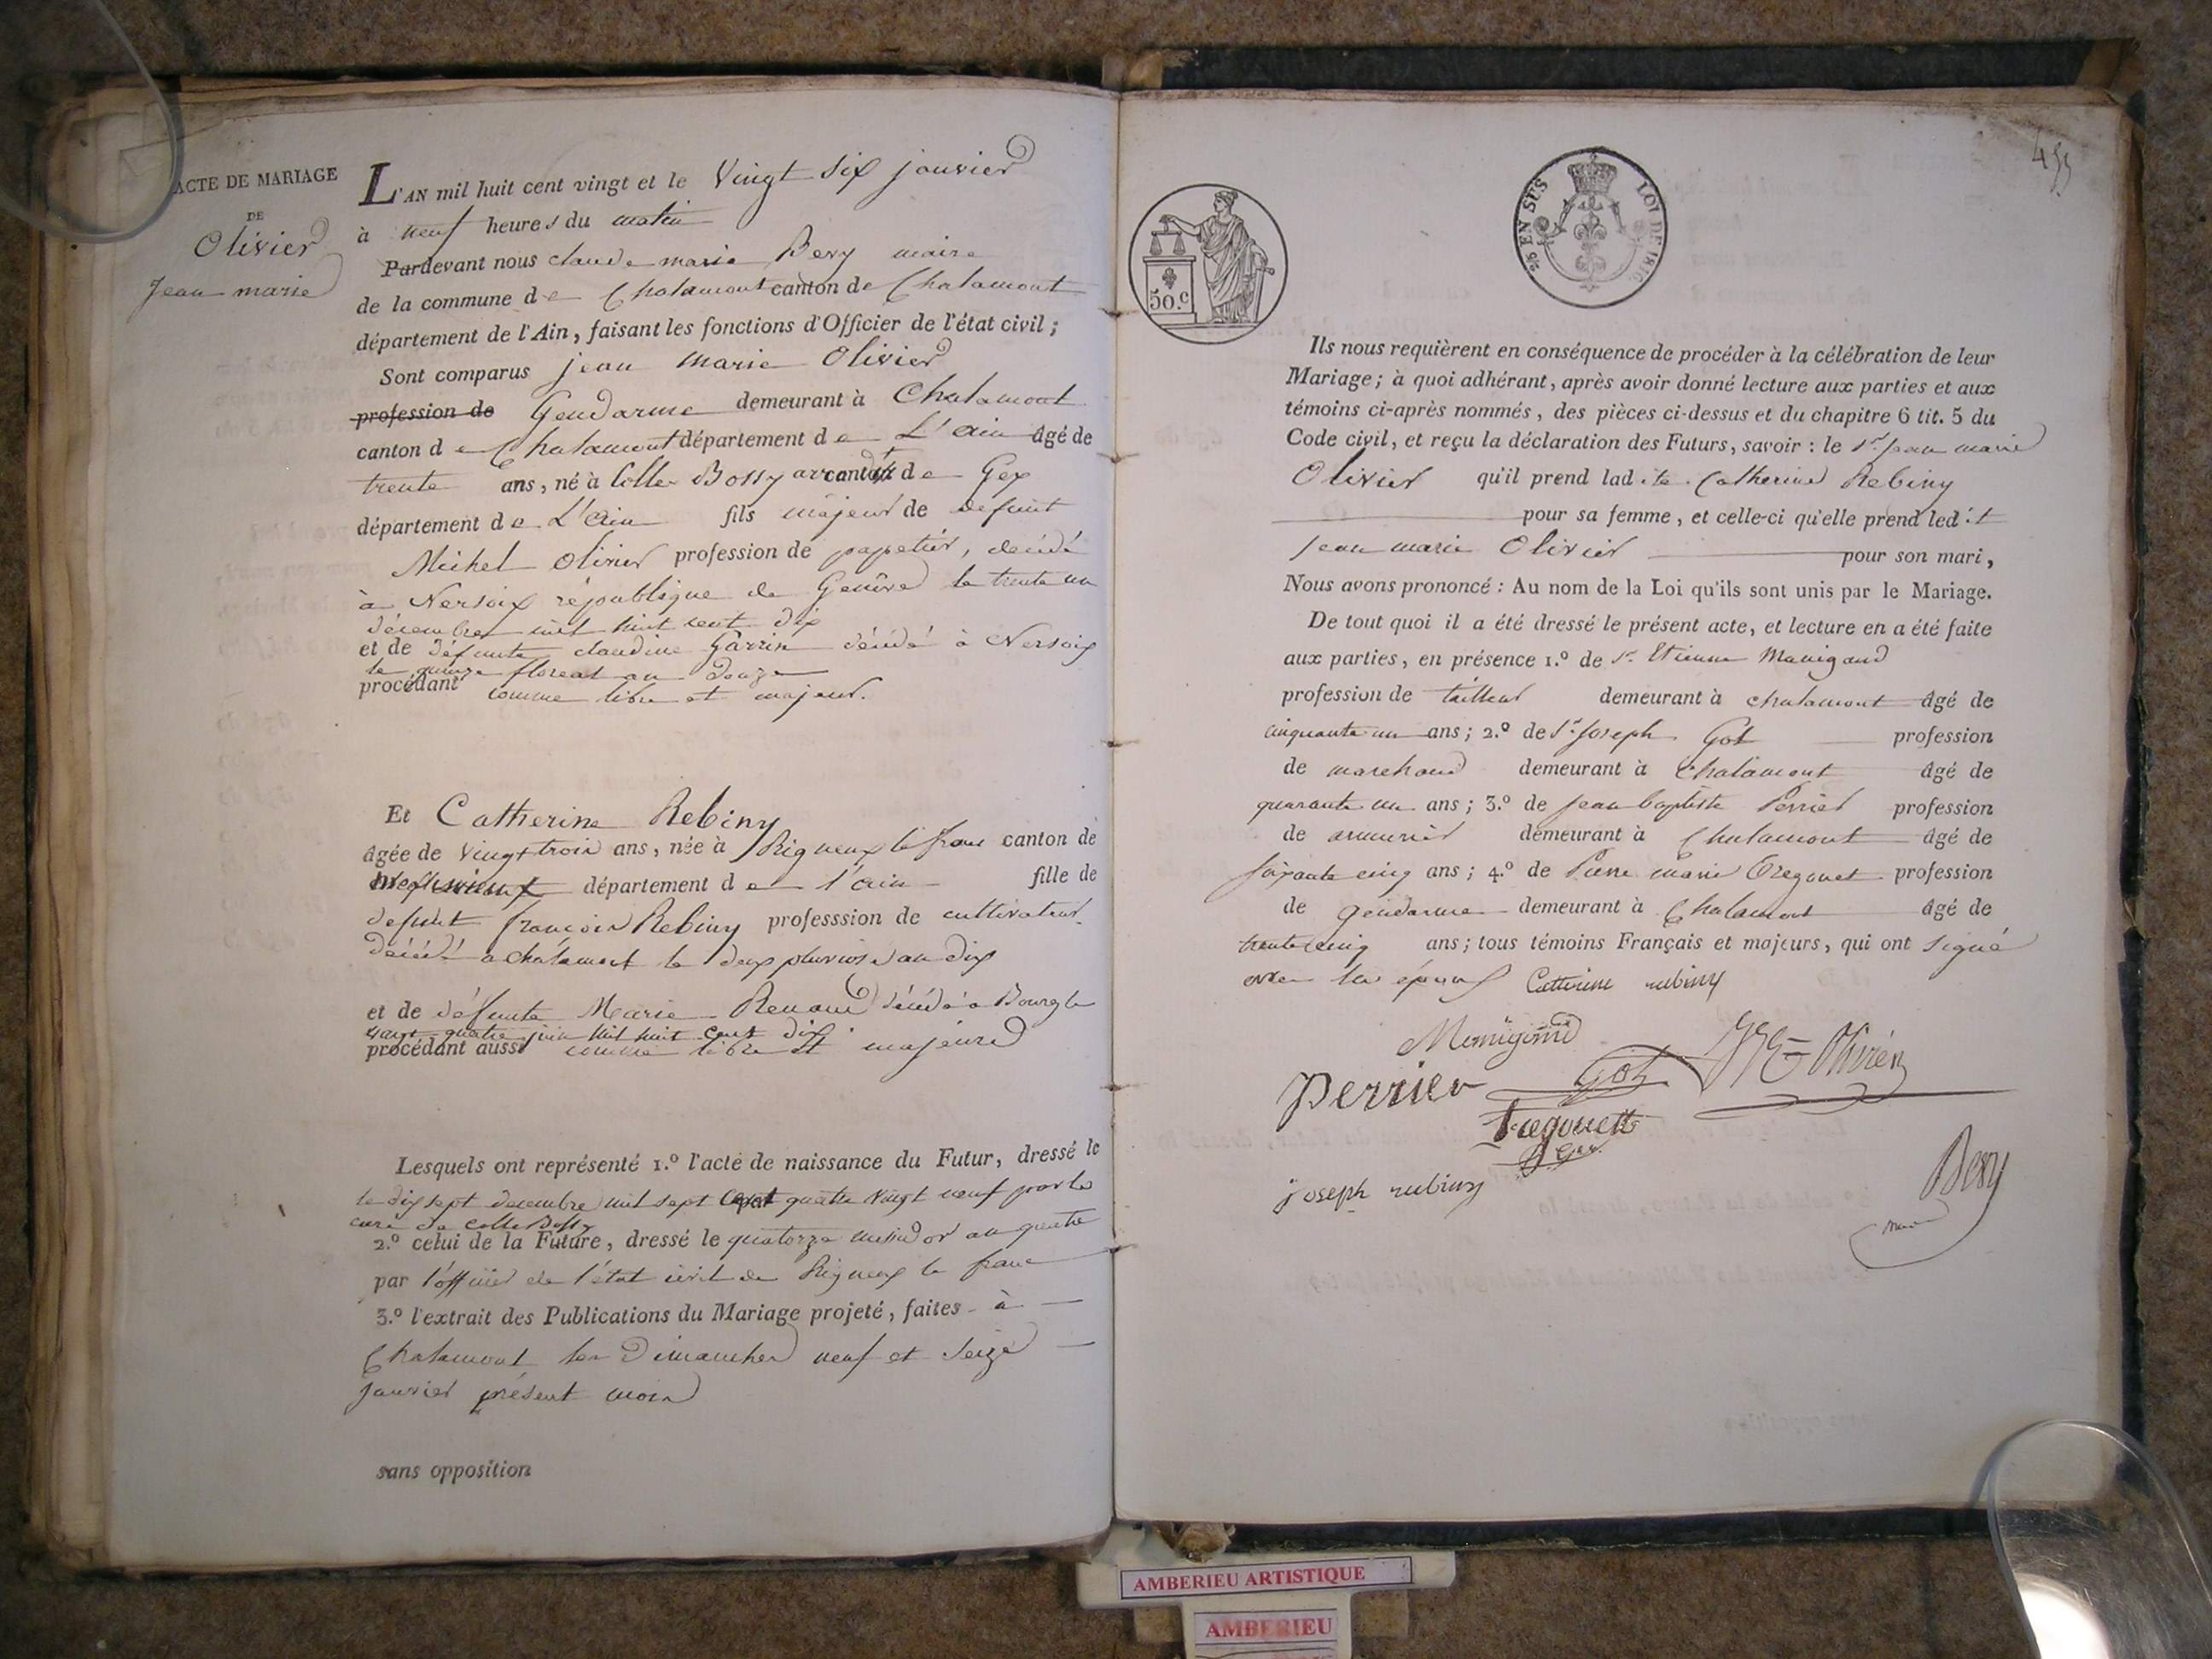 ACTE DE MARIAGE
DE
Olivier
Jean marie
L'AN mil huit cent vingt et le Vingt six janvier
à neuf heures du matin
Pardevant nous claude marie Bery maire
de la commune de Chalamont canton de Chalamont
département de l'Ain, faisant les fonctions d'Officier de l'état civil ;
Sont comparus jean marie Olivier
profession de Gendarme demeurant à Chalamont
canton de Chalamont département de L'ain âgé de
trente ans, né à Colle Bossy arr canton de Gex
département de L'ain fils majeur de defunt
Michel Olivier profession de papetier, décédé
à Versoix république de Genève le trente un
décembre mil huit cent dix
et de défunte claudine Garrin décédé à Versoix
le quinze floreal an douze
procédant comme libre et majeur.
Et Catherine Rebiny
âgée de vingt trois ans, née à Rigneux le franc canton de
département de l'ain fille de
defunt françois Rebiny professsion de cultivateur
décédé a chalamont le deux pluviose an dix
et de défunte Marie Renaud décédé à Bourg le
vingt quatre juin mil huit cent dix
procédant aussi comme libre et majeure
Lesquels ont représenté 1.º l'acte de naissance du Futur, dressé le
le dix sept decembre mil sept cent quatre vingt neuf par le
curé de Colle Bossy
2.º celui de la Future, dressé le quatorze messidor an quatre
par l'officier de l'état civil de Rigneux le franc
3.º l'extrait des Publications du Mariage projeté, faites à
Chalamont les Dimanches neuf et seize
janvier présent mois
sans opposition
455
50.c
2/5 EN SUS LOI DE 1816
Ils nous requièrent en conséquence de procéder à la célébration de leur
Mariage ; à quoi adhérant, après avoir donné lecture aux parties et aux
témoins ci-après nommés, des pièces ci-dessus et du chapitre 6 tit. 5 du
Code civil, et reçu la déclaration des Futurs, savoir : le sr. Jean marie
Olivier qu'il prend ladite Catherine Rebiny
pour sa femme, et celle-ci qu'elle prend ledit
Jean marie Olivier pour son mari,
Nous avons prononcé : Au nom de la Loi qu'ils sont unis par le Mariage.
De tout quoi il a été dressé le présent acte, et lecture en a été faite
aux parties, en présence 1.º de sr. Etienne Manigand
profession de tailleur demeurant à chalamont âgé de
cinquante un ans ; 2.º de sr. Joseph Got profession
de marchand demeurant à Chalamont âgé de
quarante un ans ; 3.º de Jean baptiste Perrier profession
de armurier demeurant à Chalamont âgé de
soixante cinq ans ; 4.º de Pierre marie profession
de gendarme demeurant à Chalamont âgé de
trente cinq ans ; tous témoins Français et majeurs, qui ont signé
avec les époux Catherine rubiny
Manigand
Perrier Got Olivier
joseph rubiny
Bery
AMBERIEU ARTISTIQUE
AMBERIEU